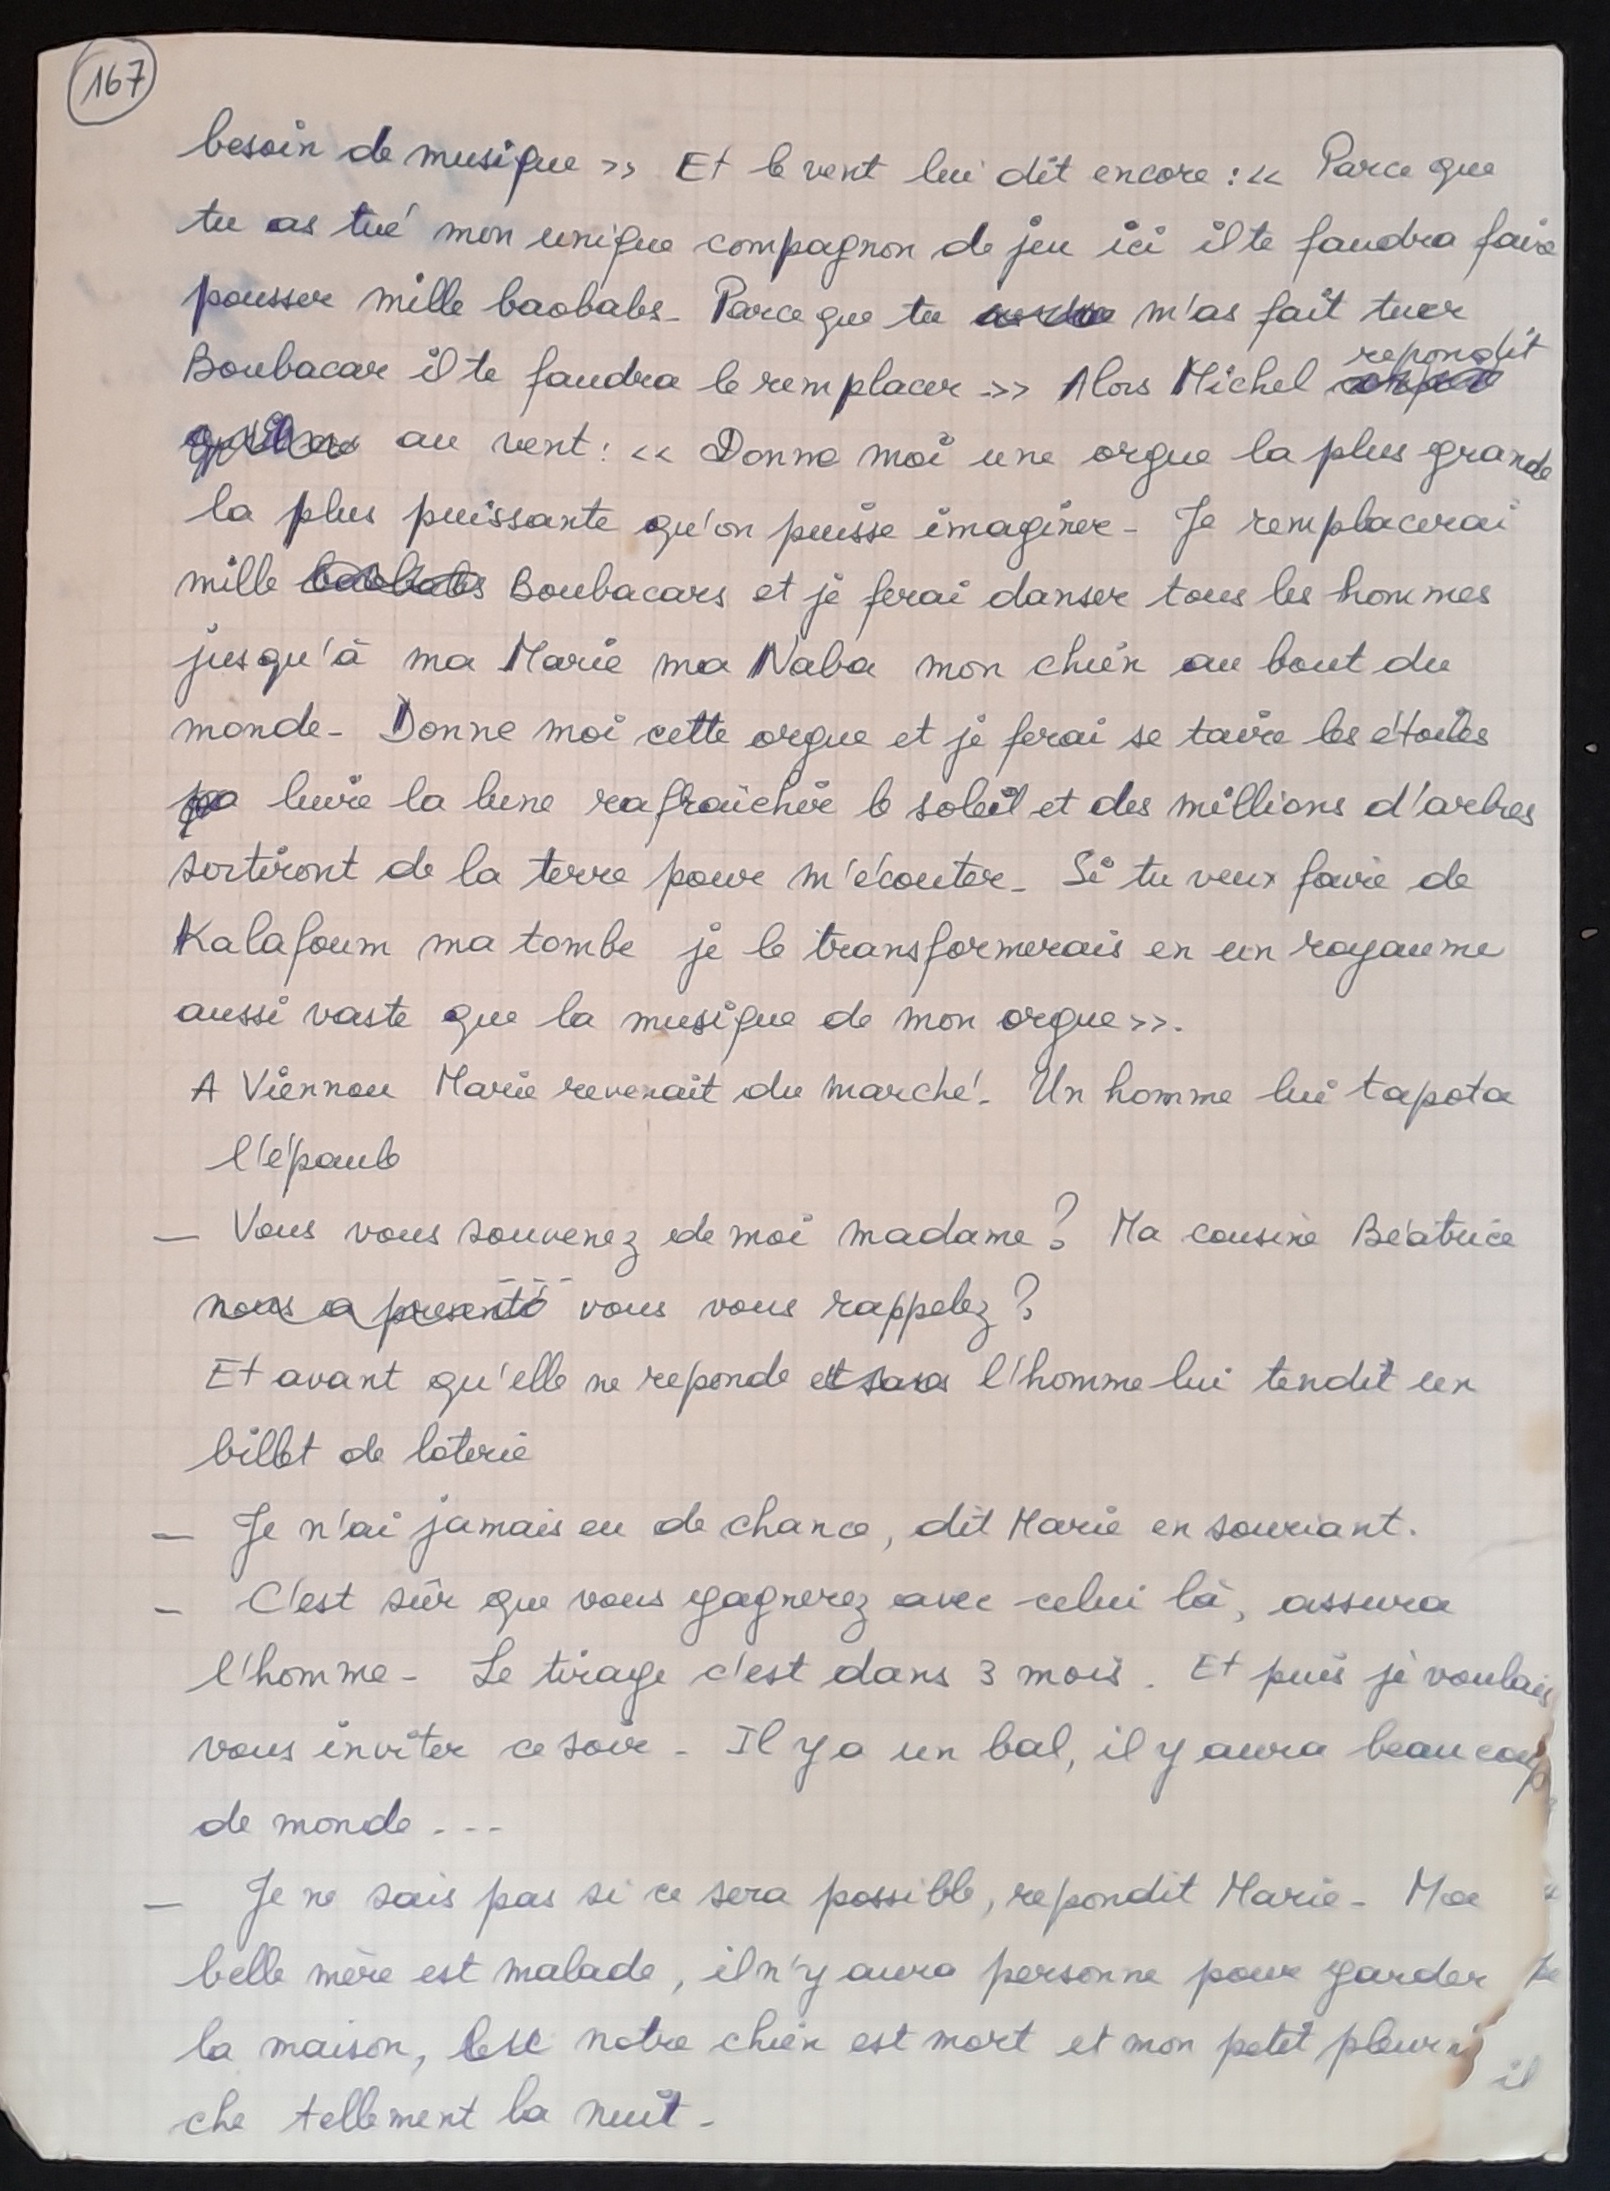 167
besoin de musique >> Et le vent lui dit encore : << Parce que
tu as tué mon unique compagnon de jeu ici il te faudra faire
pousser mille baobabs - Parce que tu m'as fait tuer
Boubacar il te faudra le remplacer ->> Alors Michel repondit
au vent : << Donne moi une orgue la plus grande
la plus puissante qu'on puisse imaginer - Je remplacerai
mille baobabs Boubacars et je ferai danser tous les hommes
jusqu'à ma Marie ma Naba mon chien au bout du
monde - Donne moi cette orgue et je ferai se taire les étoiles
luire la lune rafraichir le soleil et des millions d'arbres
sortiront de la terre pour m'écouter - Si tu veux faire de
Kalafoum ma tombe je le transformerais en un royaume
aussi vaste que la musique de mon orgue >>.
A Viennou Marie revenait du marché - Un homme lui tapota
l'épaule
— Vous vous souvenez de moi madame ? Ma cousine Béatrice
nous a presenté vous vous rappelez ?
Et avant qu'elle ne reponde et sans l'homme lui tendit un
billet de loterie
— Je n'ai jamais eu de chance, dit Marie en souriant.
— C'est sûr que vous gagnerez avec celui là, assura
l'homme - Le tirage c'est dans 3 mois. Et puis je voulais
vous inviter ce soir - Il y a un bal, il y aura beaucoup
de monde ---
— Je ne sais pas si ce sera possible, repondit Marie - Ma
belle mère est malade, il n'y aura personne pour garder
la maison, notre chien est mort et mon petit pleurni
che tellement la nuit -
il